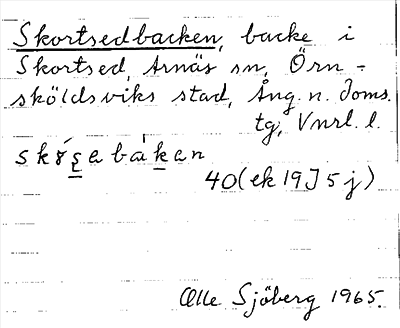 Skortsedbacken, backe i
Skortsed, Arnäs sn, Örn-
sköldsviks stad, Ång. n. Doms.
tg, Vnrl. l.
40 (ek 19J 5j)
Olle Sjöberg 1965.